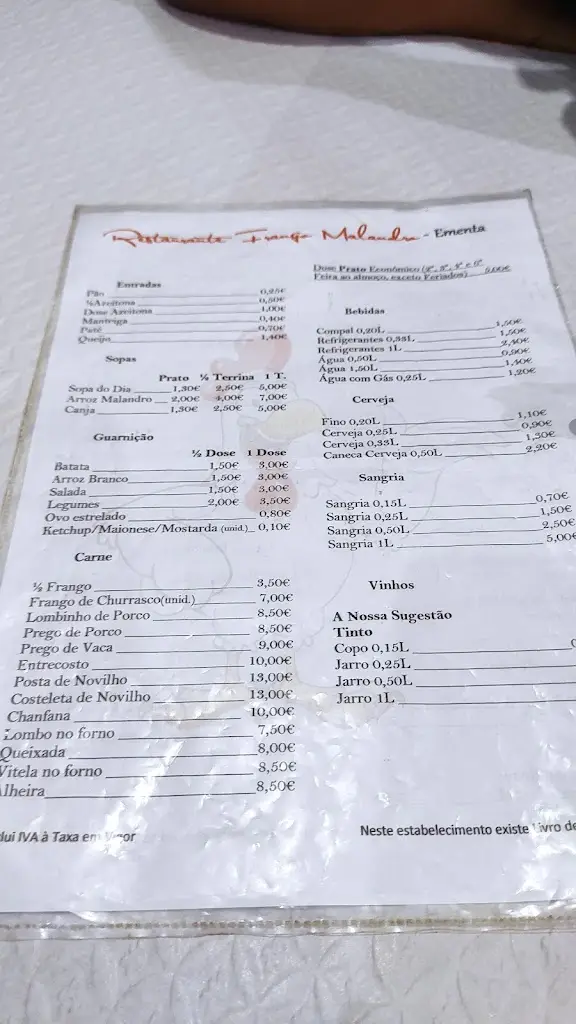 Restaurante Frango Malandro - Ementa
Dose Prato Económico (2ª, 3ª, 4ª e 6ª
Feira ao almoço, exceto Feriados) 5,00€
Entradas
Pão 0,25€
½Azeitona 0,50€
Dose Azeitona 1,00€
Manteiga 0,40€
Patê 0,70€
Queijo 1,40€
Sopas
Prato ½ Terrina 1 T.
Sopa do Dia 1,30€ 2,50€ 5,00€
Arroz Malandro 2,00€ 4,00€ 7,00€
Canja 1,30€ 2,50€ 5,00€
Guarnição
½ Dose 1 Dose
Batata 1,50€ 3,00€
Arroz Branco 1,50€ 3,00€
Salada 1,50€ 3,00€
Legumes 2,00€ 3,50€
Ovo estrelado 0,80€
Ketchup/Maionese/Mostarda (unid.) 0,10€
Carne
½ Frango 3,50€
Frango de Churrasco(unid.) 7,00€
Lombinho de Porco 8,50€
Prego de Porco 8,50€
Prego de Vaca 9,00€
Entrecosto 10,00€
Posta de Novilho 13,00€
Costeleta de Novilho 13,00€
Chanfana 10,00€
Lombo no forno 7,50€
Queixada 8,00€
Vitela no forno 8,50€
lheira 8,50€
Bebidas
Compal 0,20L 1,50€
Refrigerantes 0,33L 1,50€
Refrigerantes 1L 2,40€
Água 0,50L 0,90€
Água 1,50L 1,40€
Água com Gás 0,25L 1,20€
Cerveja
Fino 0,20L 1,10€
Cerveja 0,25L 0,90€
Cerveja 0,33L 1,30€
Caneca Cerveja 0,50L 2,20€
Sangria
Sangria 0,15L 0,70€
Sangria 0,25L 1,50€
Sangria 0,50L 2,50€
Sangria 1L 5,00€
Vinhos
A Nossa Sugestão
Tinto
Copo 0,15L
Jarro 0,25L
Jarro 0,50L
Jarro 1L
lui IVA à Taxa em Vigor
Neste estabelecimento existe Livro de